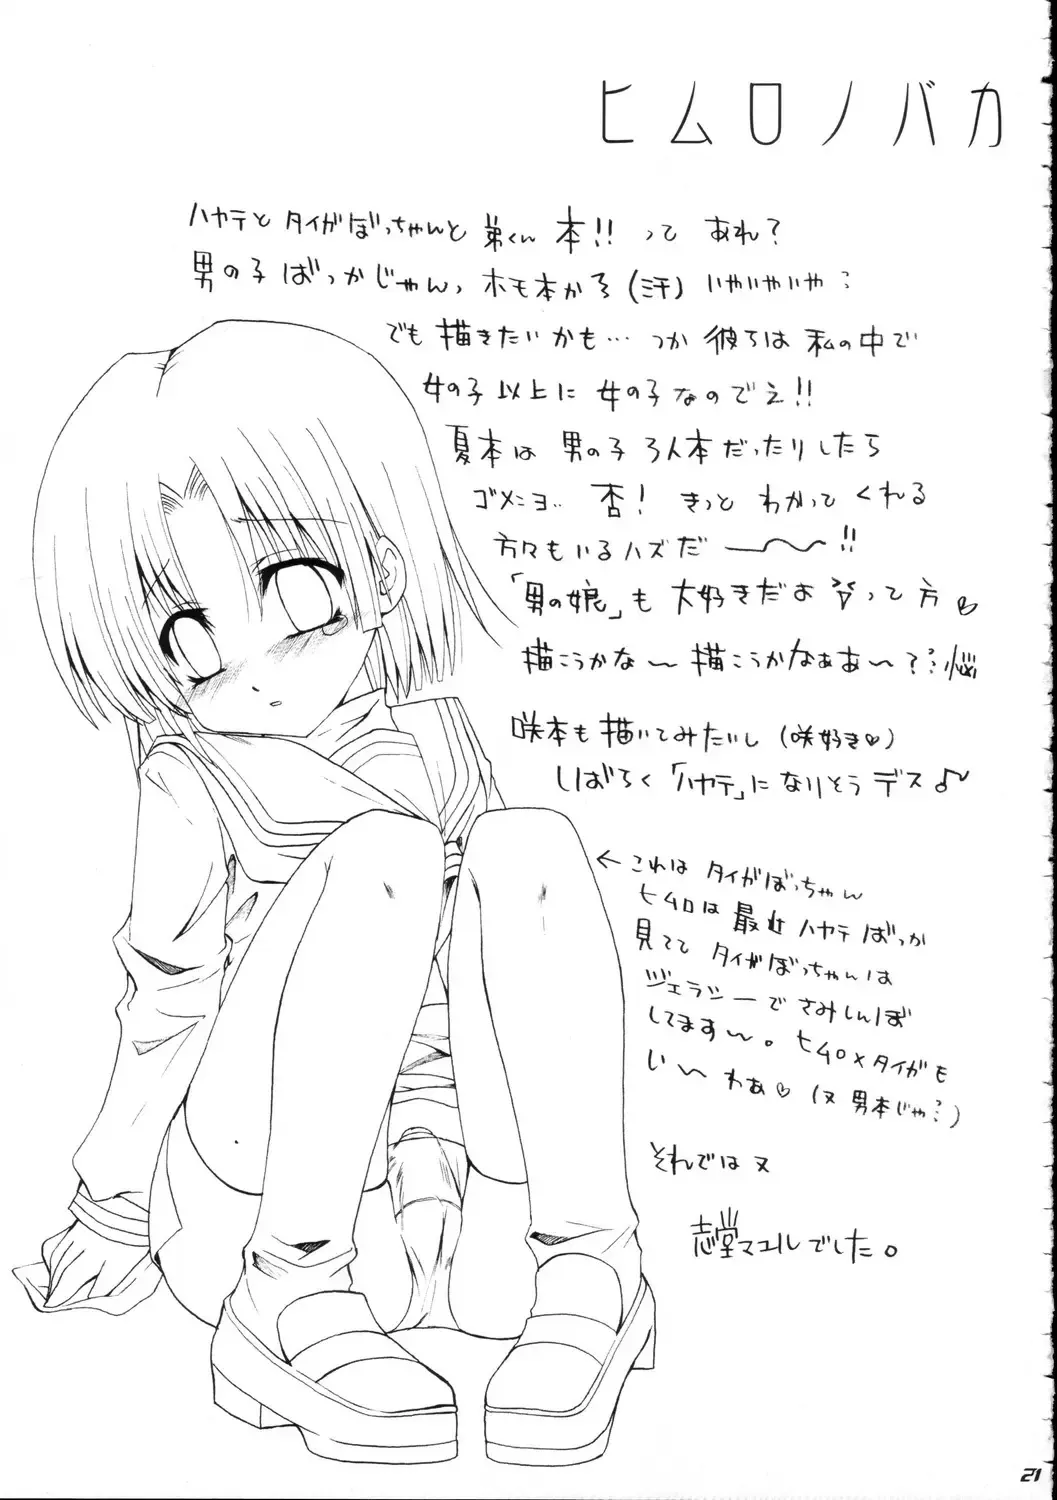 ヒムロノバカ
ハヤテと タイガぼっちゃんと 弟くん 本!! って あれ?
男の子 ばっかじゃんっ ホモ本かよ (汗) いやいやいや…
でも 描きたいかも… つか 彼らは 私の中で
女の子 以上に 女の子なのでえ!!
夏本は 男の子 3人本だったりしたら
ゴメンヨ… 否! きっと わかってくれる
方々もいるハズだ ー〜〜!!
「男の娘」も 大好きだよ って 方♡
描こうかな〜 描こうかなぁあ〜?…悩
咲本も 描いてみたいし (咲好き♡)
しばらく 「ハヤテ」に なりそう デス♪
← これは タイガぼっちゃん
ヒムロは 最近 ハヤテ ばっか
見てて タイガぼっちゃんは
ジェラシーで さみしんぼ
してます〜。 ヒムロ×タイガも
い〜 わぁ♡ (ヌ 男本じゃ…?)
それでは ヌ
志堂マユル でした。
21